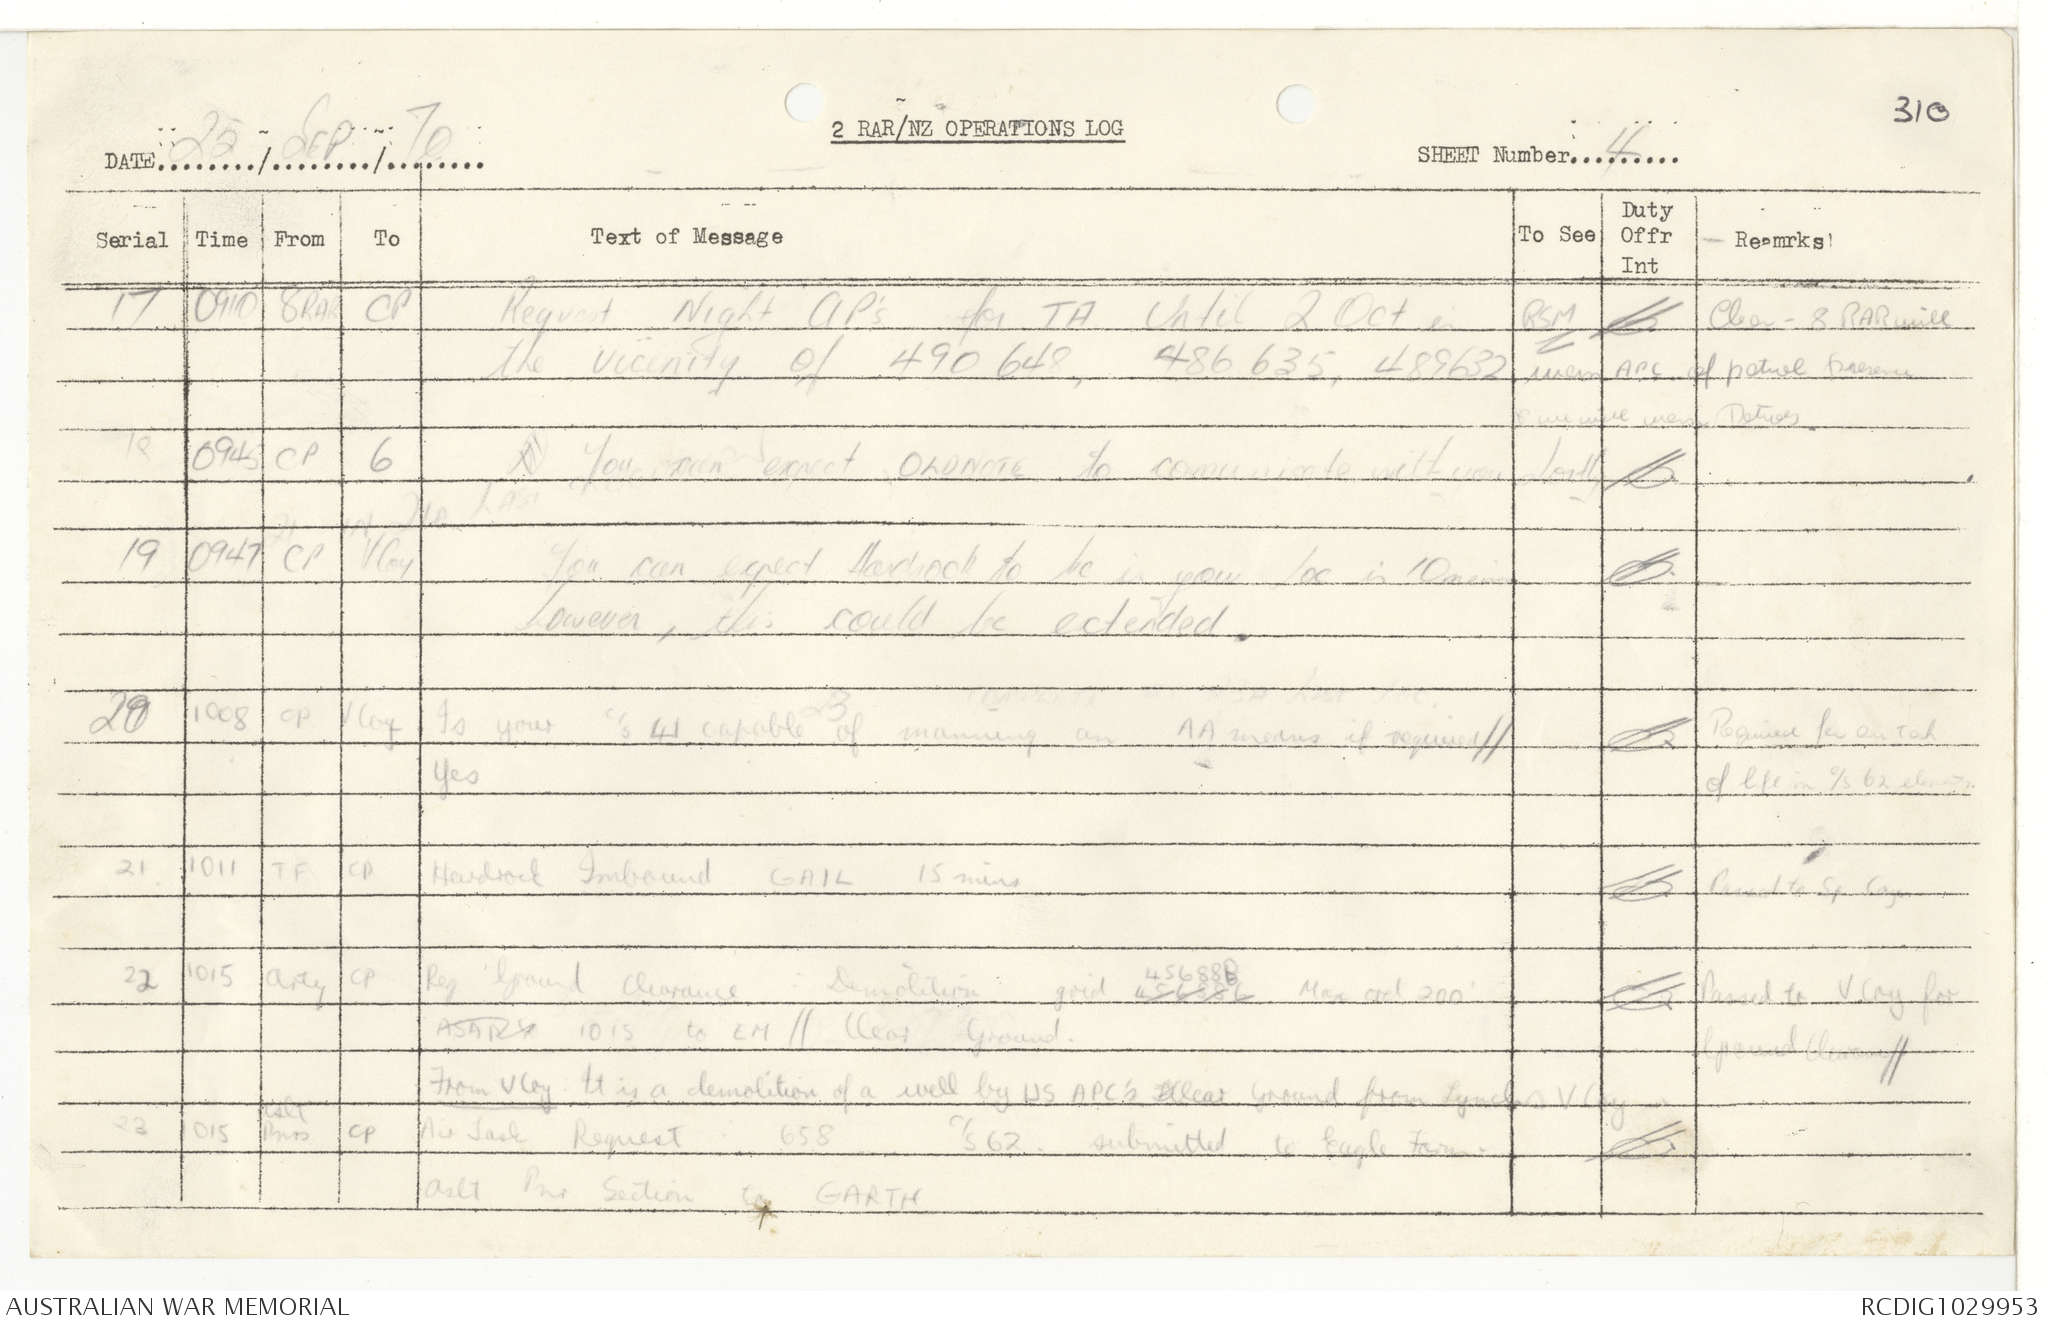 310
2 RAR/NZ OPERATIONS LOG
DATE 25 / Sep / 70
SHEET Number 4
Serial Time From To Text of Message To See Duty Offr Int Remrks
17 0910 8RAR CP Request Night AP's for TA Until 2 Oct in RSM Clear - 8 RAR will
the vicinity of 490 648, 486 635, 489632 APC of patrol
18 0945 CP 6 You can expect OLDNOTE to communicate with you shortly
19 0947 CP V Coy You can expect Hardrock to be in your loc in 10 mins
however, this could be extended.
20 1008 CP V Coy Is your c/s 41 capable of manning an AA means if required// Required for air task
Yes of life in c/s 62
21 1011 TF CP Hardrock Inbound GAIL 15 mins Passed to Sp Coy
22 1015 Arty CP Req Ground Clearance Demolition grid 456886 Max ord 200' Passed to V Coy for
1015 to EM // Clear Ground. Ground Clearance//
From V Coy It is a demolition of a well by US APC's Clear Ground from V Coy
23 1015 Aslt Pnrs CP Air Task Request 658 c/s 62 submitted to Eagle Farm.
Aslt Pnr Section to GARTH
AUSTRALIAN WAR MEMORIAL
RCDIG1029953